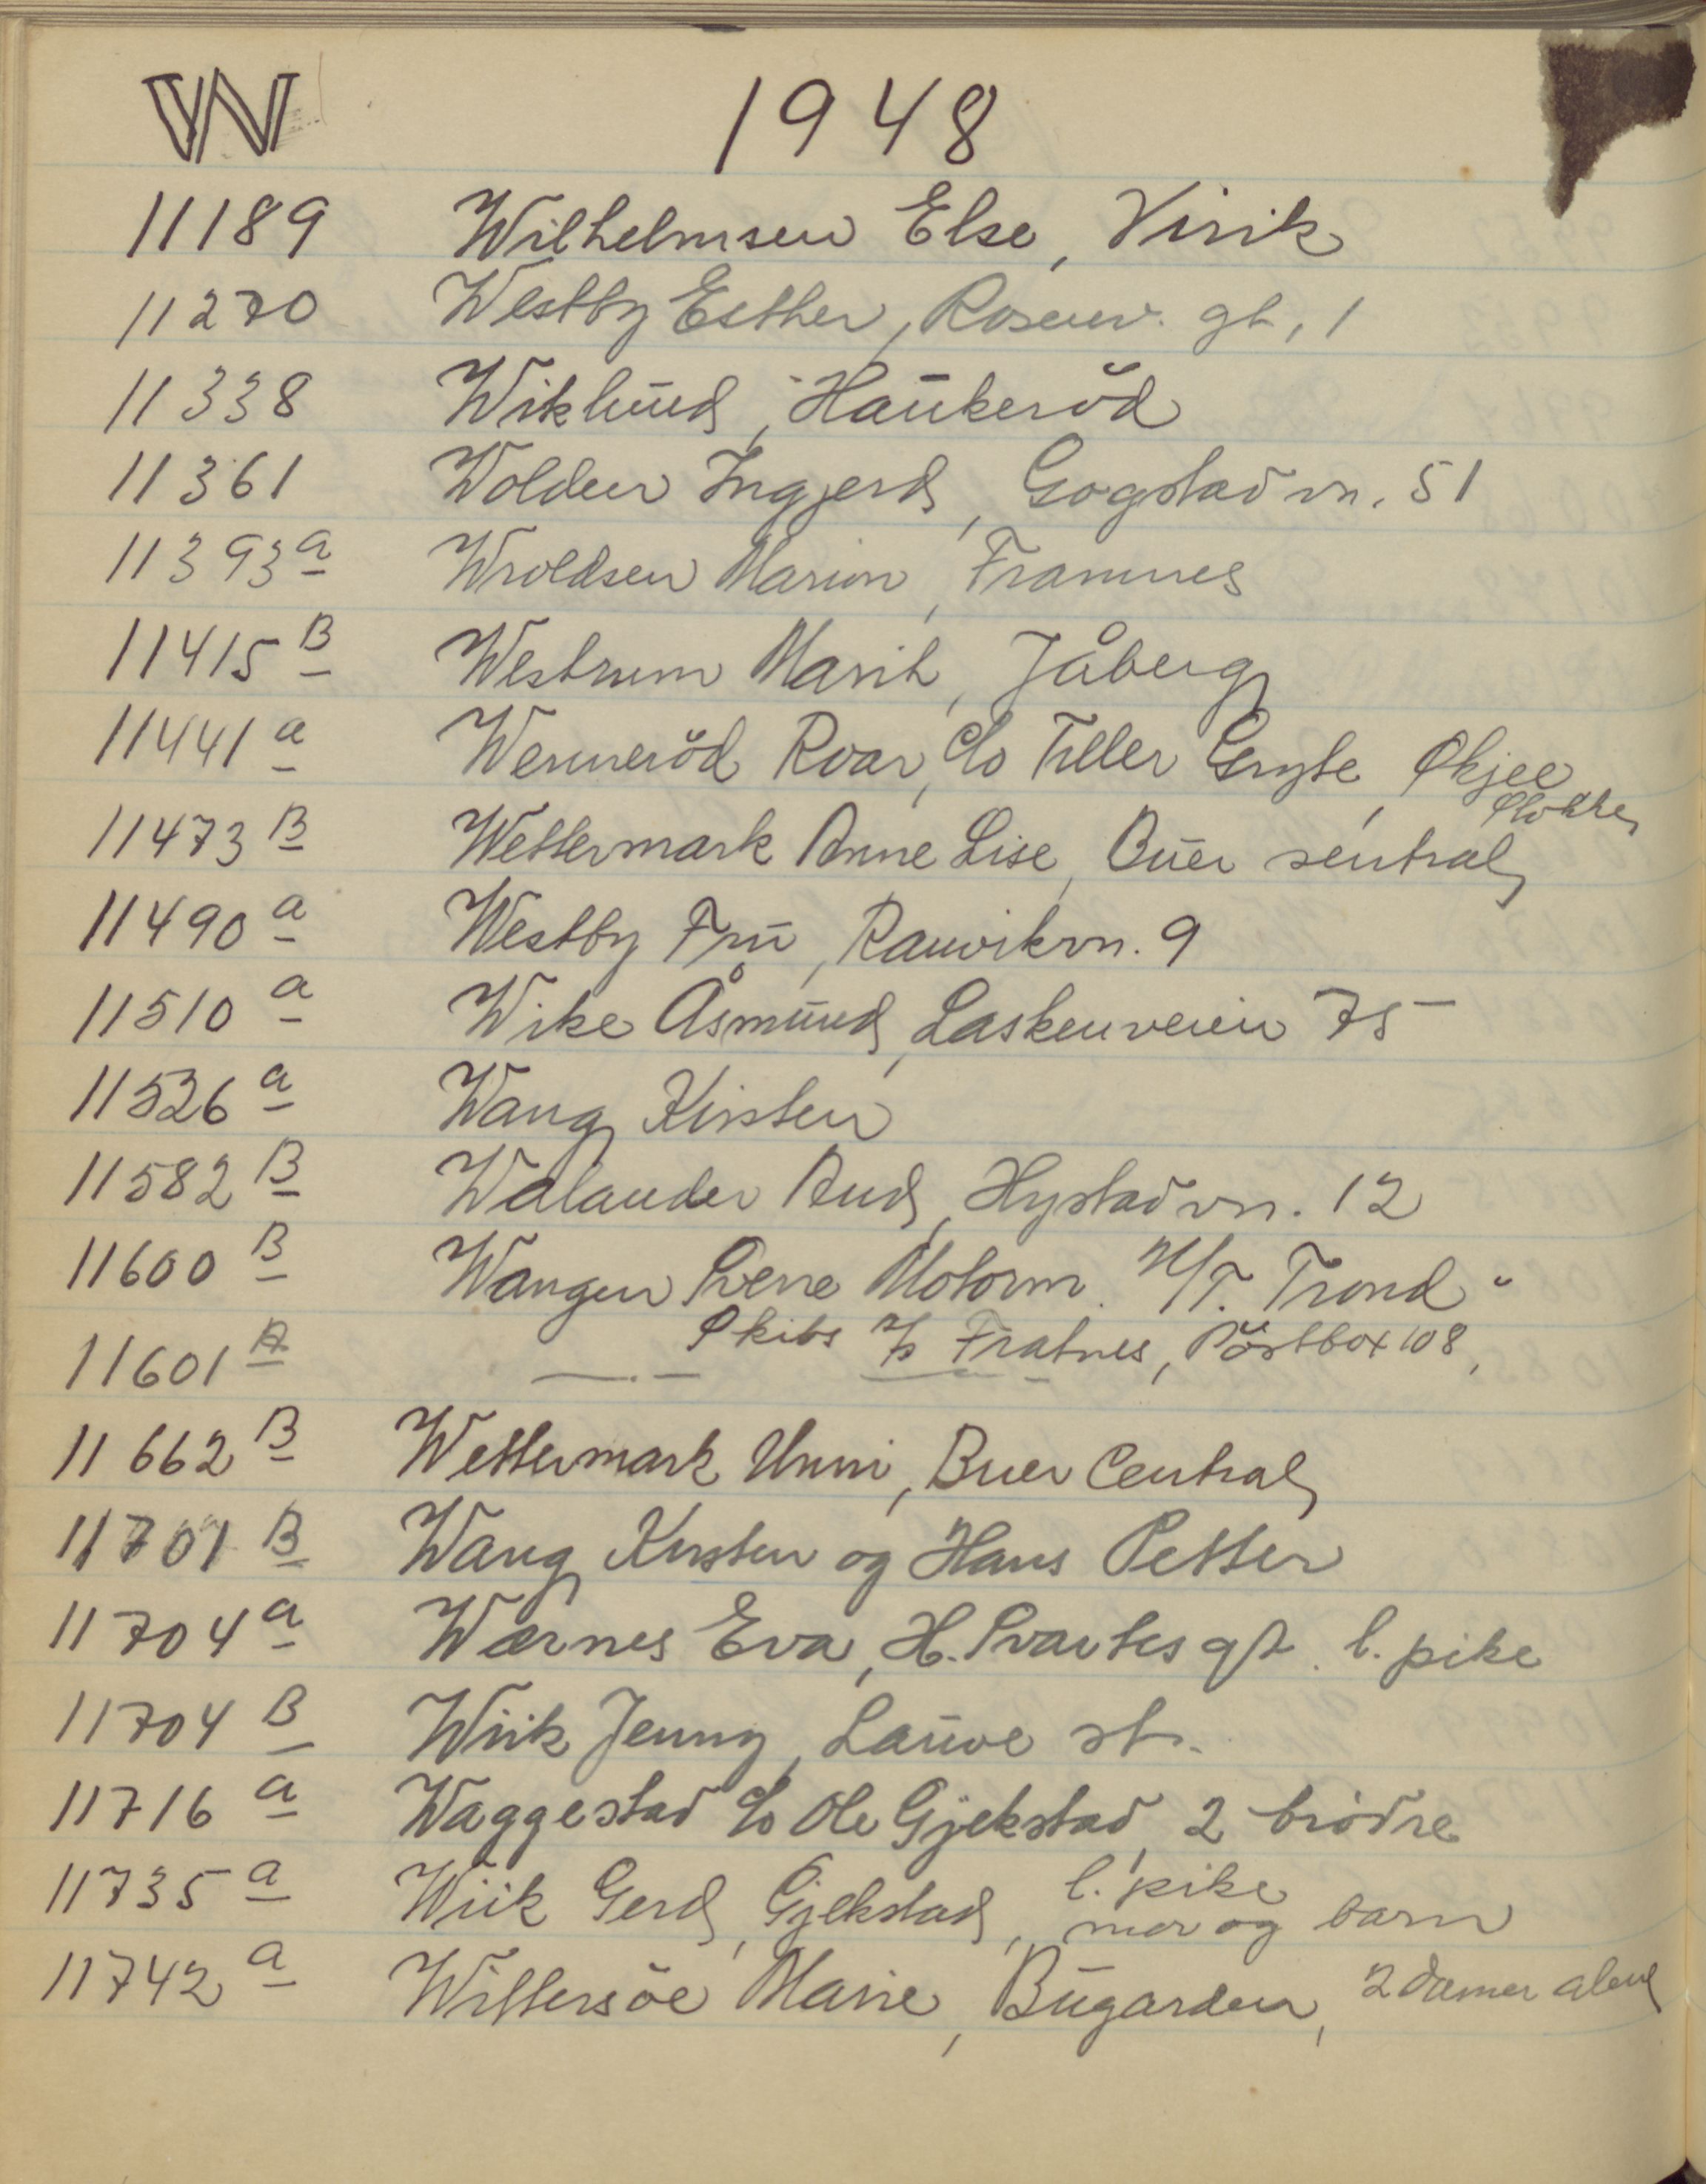 W 1948
11189 Wilhelmsen Else, Virik
11270 Westby Esther, Rosenv. gt, 1
11338 Wiklund, Haukeröd
11361 Wolden Ingjerd, Gogstadvn. 51
11393 a Wroldsen Marion, Framnes
11415 B Westrum Marit, Jåberg
11441 a Wenneröd Roar, c/o Tiller Gryte, Skjee
Stokke
11473 B Wettermark Anne Lise, Buer sentral
11490 a Westby Fru, Ranvikvn. 9
11510 a Wike Åsmund, Laskenveien 75
11526 a Wang Kirsten
11582 B Walander Aud, Hystadvn. 12
11600 B Wangen Sverre Motorm. M/T. Trond"
Skibs A/S Fratnes, Postbox 108,
11601 A —.—
11662 B Wettermark Unni, Buer Central
11701 B Wang Kirsten og Hans Petter
11704 a Wærnes Eva, H. Svartes gt. l. pike
11704 B Wiik Jenny, Lauve st.
11716 a Waggestad c/o Ole Gjekstad, 2 brødre
11735 a Wiik Gerd, Gjekstad, l. pike
mor og barn
11742 a Wittersöe Marie, Bugarden, 2 damer alene